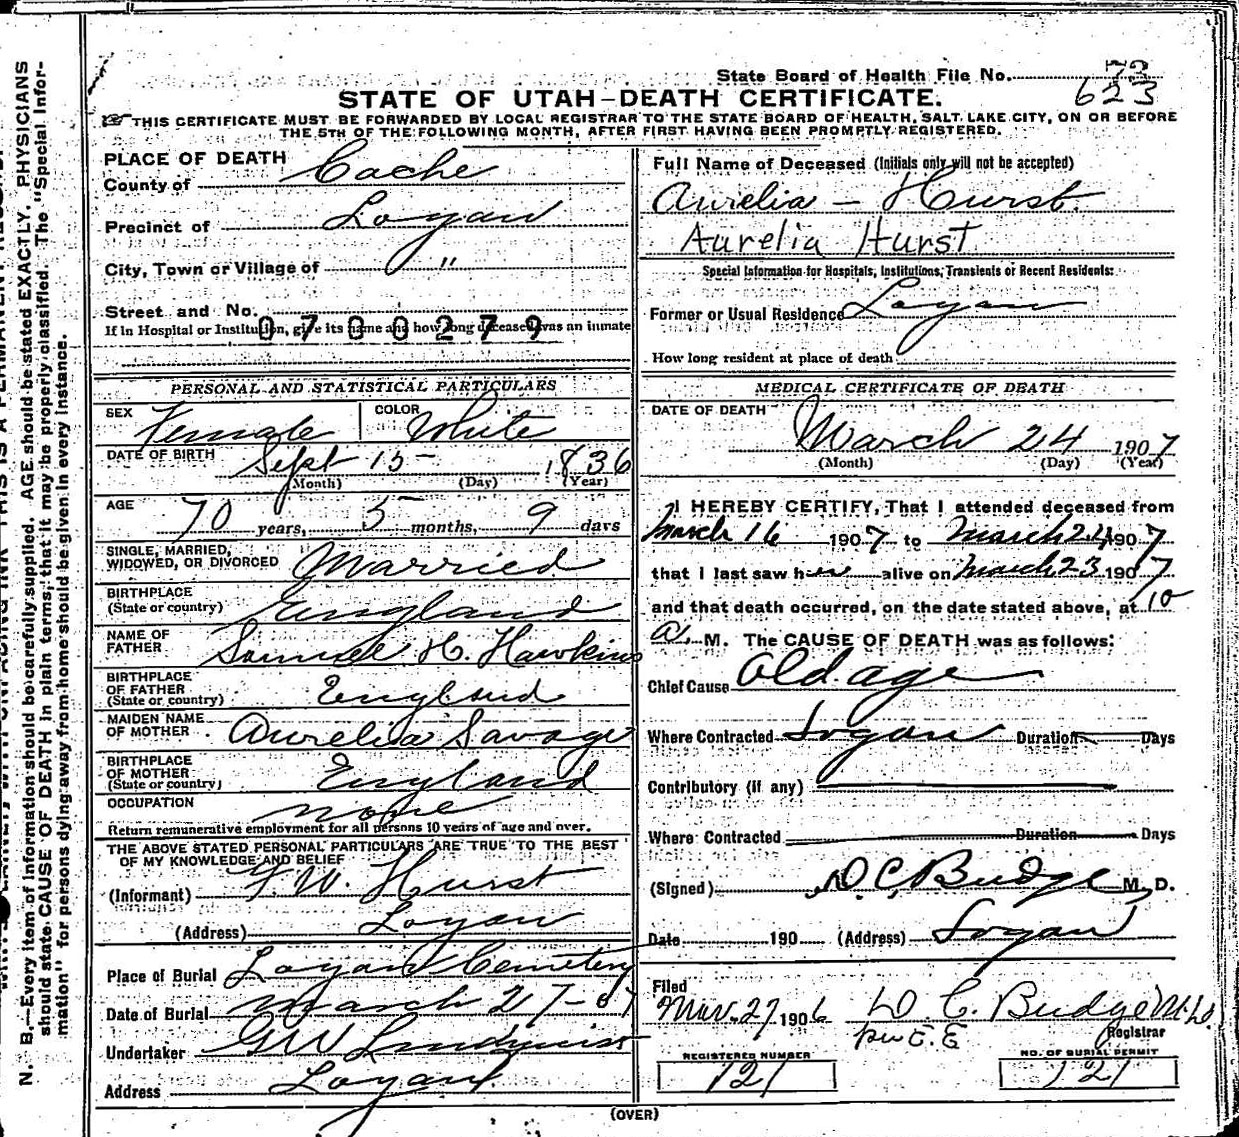 State Board of Health File No. 73
623
STATE OF UTAH—DEATH CERTIFICATE.
THIS CERTIFICATE MUST BE FORWARDED BY LOCAL REGISTRAR TO THE STATE BOARD OF HEALTH, SALT LAKE CITY, ON OR BEFORE
THE 5TH OF THE FOLLOWING MONTH, AFTER FIRST HAVING BEEN PROMPTLY REGISTERED.
PLACE OF DEATH
County of Cache
Precinct of Logan
City, Town or Village of "
Street and No.
If in Hospital or Institution, give its name and how long deceased was an inmate
0700279
PERSONAL AND STATISTICAL PARTICULARS
SEX Female COLOR White
DATE OF BIRTH Sept 15 1836
(Month) (Day) (Year)
AGE 70 years, 5 months, 9 days
SINGLE, MARRIED,
WIDOWED, OR DIVORCED Married
BIRTHPLACE
(State or country) England
NAME OF
FATHER Samuel H. Hawkins
BIRTHPLACE
OF FATHER
(State or country) England
MAIDEN NAME
OF MOTHER Aurelia Savage
BIRTHPLACE
OF MOTHER
(State or country) England
OCCUPATION none
Return remunerative employment for all persons 10 years of age and over.
THE ABOVE STATED PERSONAL PARTICULARS ARE TRUE TO THE BEST
OF MY KNOWLEDGE AND BELIEF
(Informant) F. W. Hurst
(Address) Logan
Place of Burial Logan Cemetery
Date of Burial March 27-07
Undertaker G W Lindquist
Address Logan
Full Name of Deceased (Initials only will not be accepted)
Aurelia — Hurst.
Aurelia Hurst
Special Information for Hospitals, Institutions, Transients or Recent Residents:
Former or Usual Residence Logan
How long resident at place of death
MEDICAL CERTIFICATE OF DEATH
DATE OF DEATH March 24 1907
(Month) (Day) (Year)
I HEREBY CERTIFY, That I attended deceased from
March 16 1907 to March 24 1907
that I last saw her alive on March 23 1907
and that death occurred, on the date stated above, at 10
a. M. The CAUSE OF DEATH was as follows:
Chief Cause Old age
Where Contracted Logan Duration Days
Contributory (if any)
Where Contracted Duration Days
(Signed) D C Budge M. D.
Date 190 (Address) Logan
Filed
Mar. 27 1906 D. C. Budge M.D.
per E. E Registrar
REGISTERED NUMBER NO. OF BURIAL PERMIT
121 121
(OVER)
N. B.—Every item of information should be carefully supplied. AGE should be stated EXACTLY. PHYSICIANS
should state CAUSE OF DEATH in plain terms, that it may be properly classified. The "Special Infor-
mation" for persons dying away from home should be given in every instance.